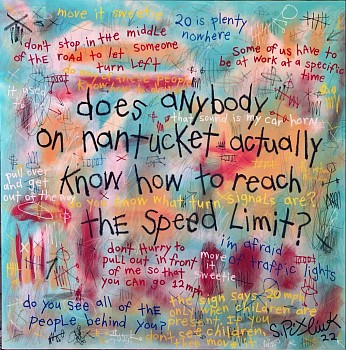 move it sweetie
20 is plenty
nowhere
don't stop in the middle
of the road to let someone
turn left
Some of us have to
be at work at a specific
time
know these people
it used
to
does anybody
that sound is my car horn
on nantucket actually
know how to reach
pull over
and get
out of the way
do you know what turn signals are?
the speed limit?
i'm afraid
of traffic lights
don't hurry to
pull out in front
of me so that
you can go 12mph
move
it
sweetie
do you see all of the
people behind you?
the sign says 20 mph
only when children are
present. If you
see children,
then move it
22